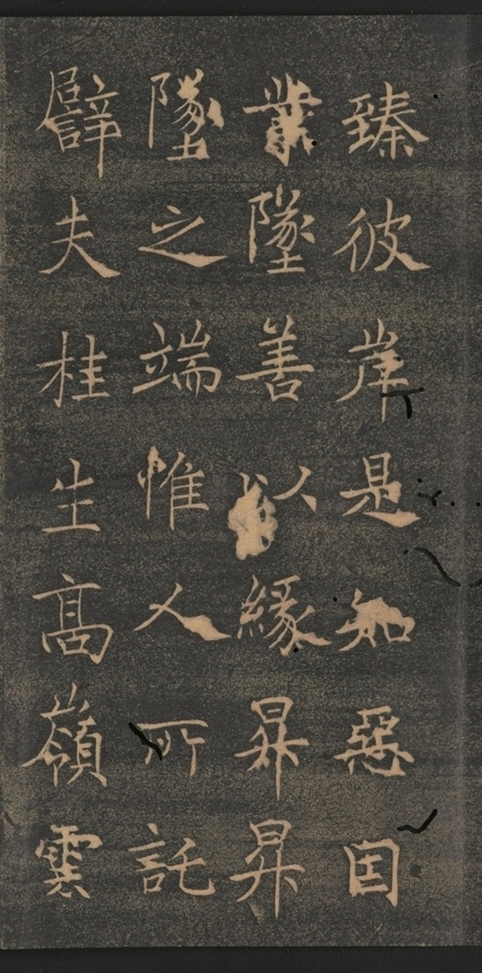 臻彼岸是知惡因
業墜善以緣昇昇
墜之端惟人所託
譬夫桂生高嶺雲